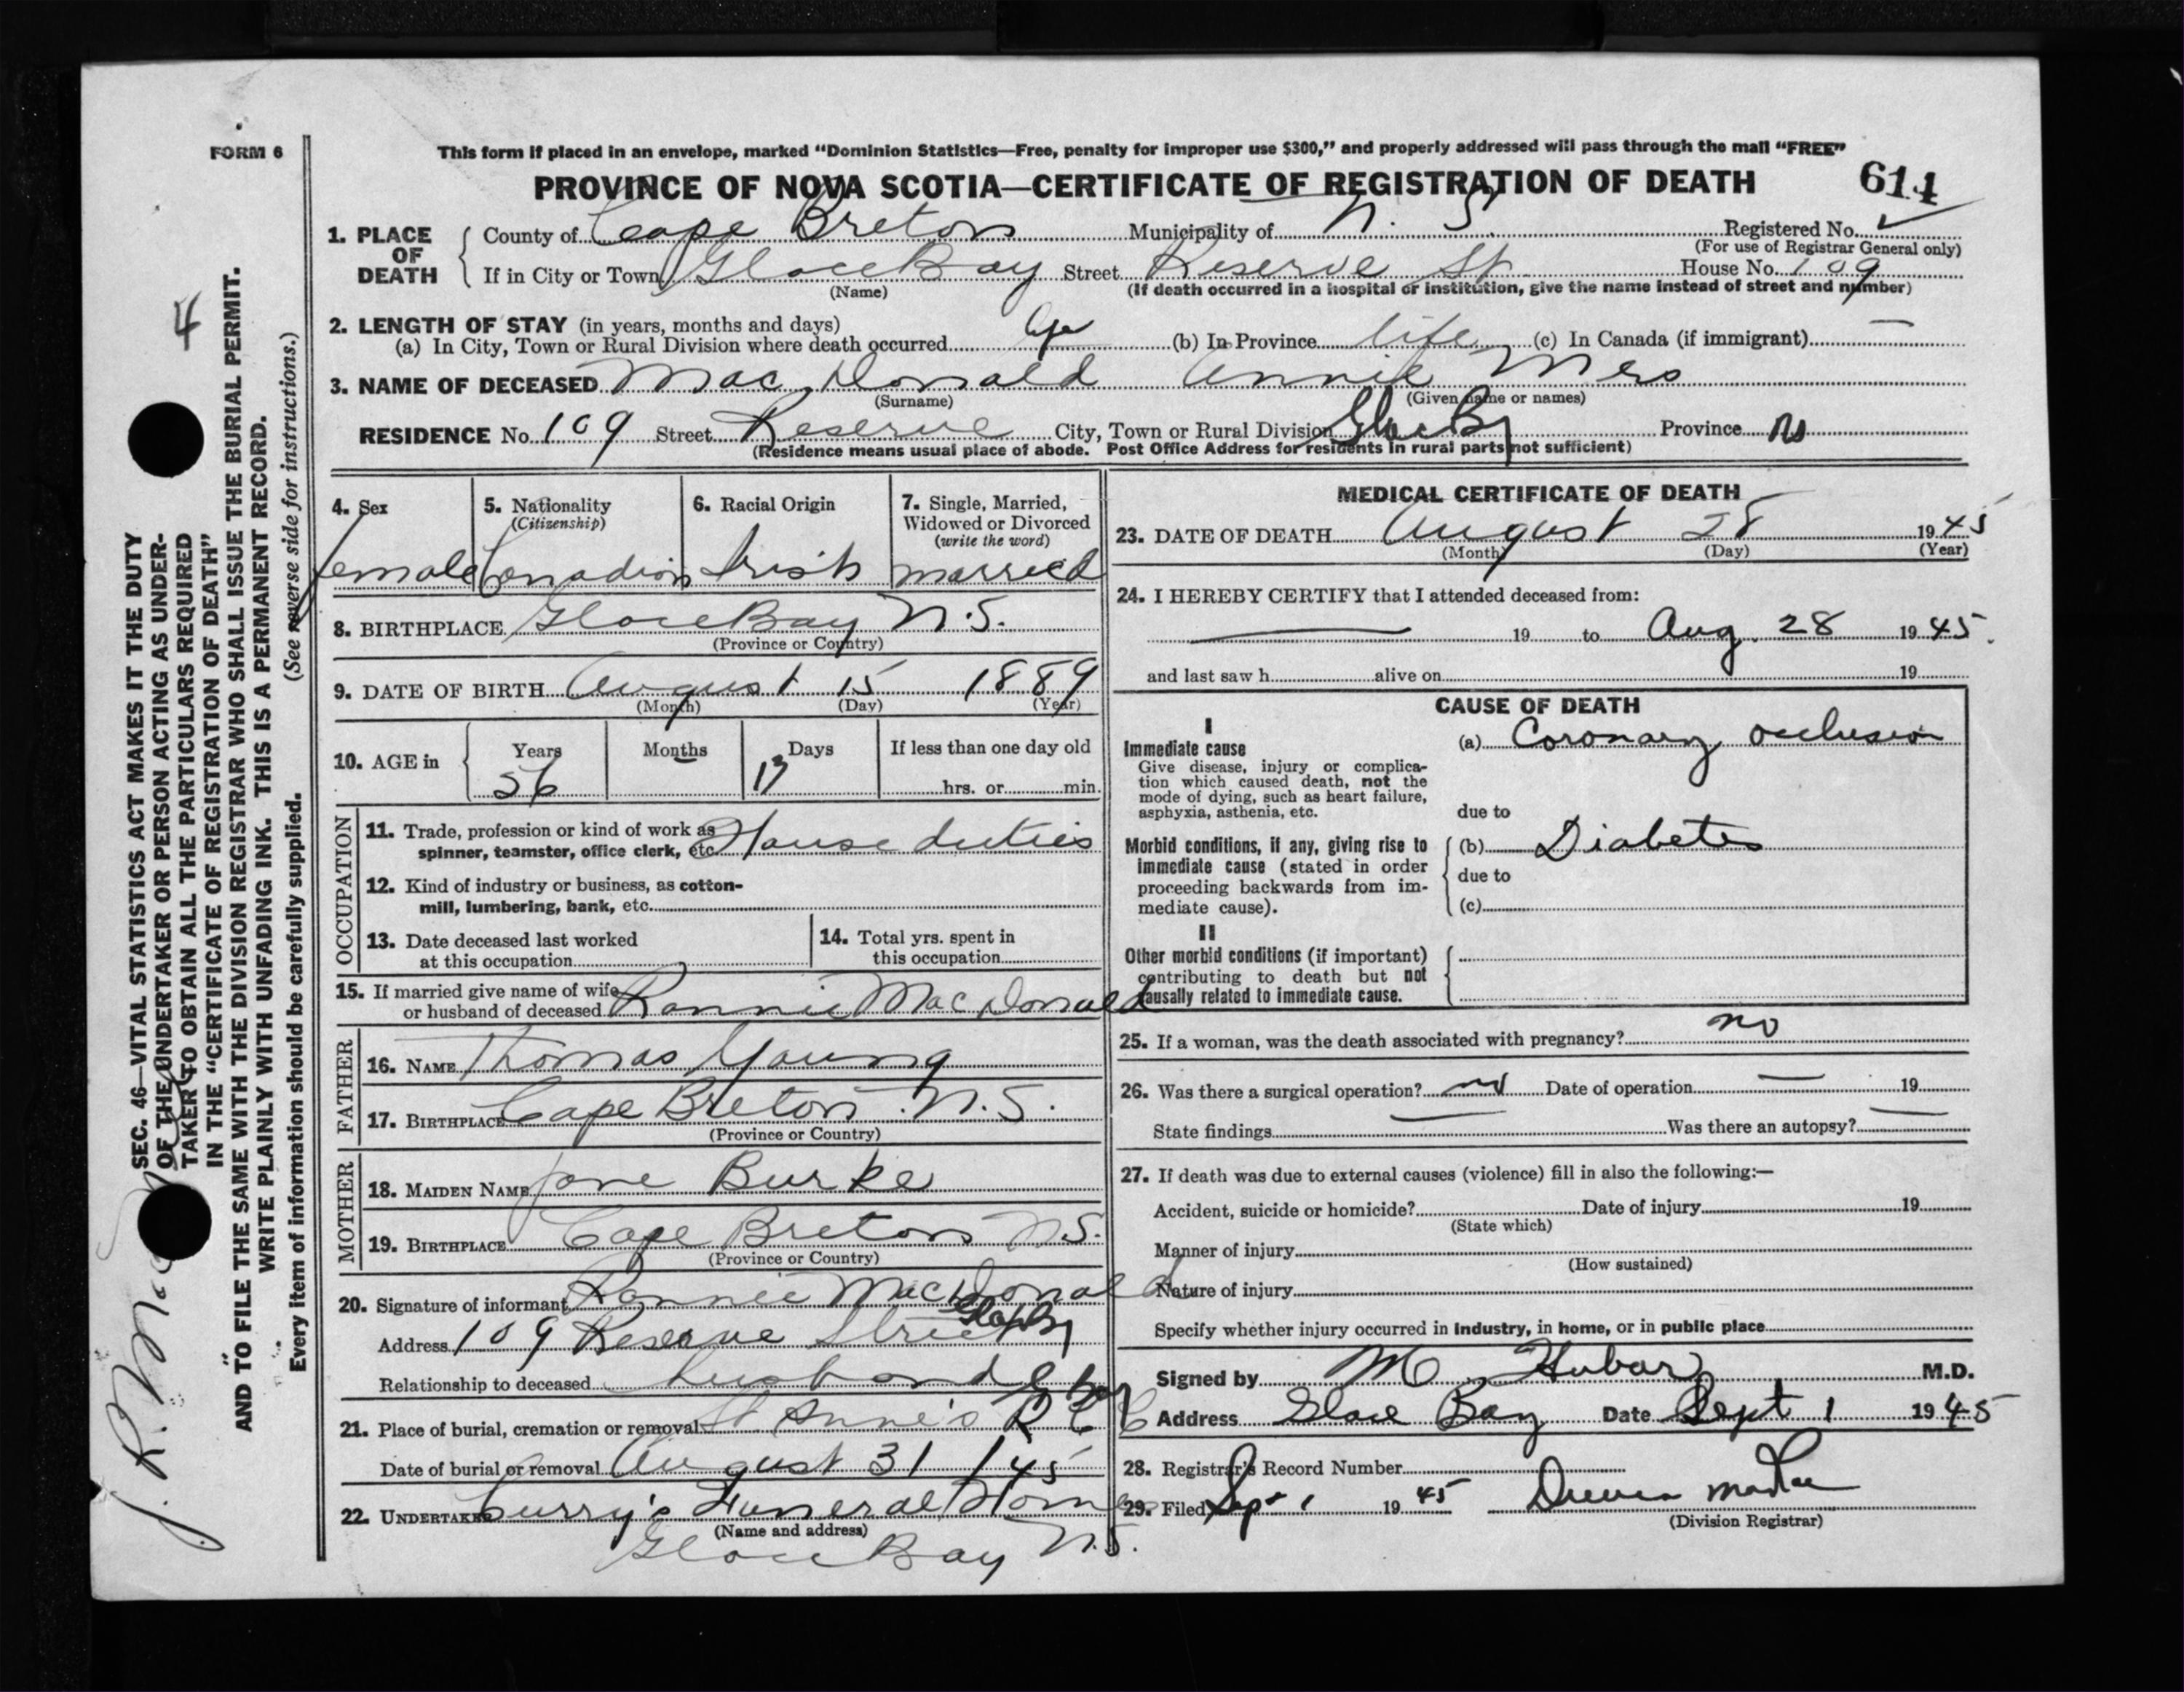 FORM 6
This form if placed in an envelope, marked “Dominion Statistics—Free, penalty for improper use $300,” and properly addressed will pass through the mail “FREE”
PROVINCE OF NOVA SCOTIA—CERTIFICATE OF REGISTRATION OF DEATH 614
1. PLACE OF DEATH County of Cape Breton Municipality of N. S. Registered No.
(For use of Registrar General only)
If in City or Town Glace Bay Street Reserve St House No. 109
(Name) (If death occurred in a hospital or institution, give the name instead of street and number)
2. LENGTH OF STAY (in years, months and days)
(a) In City, Town or Rural Division where death occurred (b) In Province life (c) In Canada (if immigrant) —
3. NAME OF DECEASED Mac Donald Annie Mrs
(Surname) (Given name or names)
RESIDENCE No. 109 Street Reserve City, Town or Rural Division Glace By Province NS
(Residence means usual place of abode. Post Office Address for residents in rural parts not sufficient)
4. Sex 5. Nationality 6. Racial Origin 7. Single, Married,
(Citizenship) Widowed or Divorced
(write the word)
female Canadian Irish married
8. BIRTHPLACE Glace Bay N.S.
(Province or Country)
9. DATE OF BIRTH August 15 1889
(Month) (Day) (Year)
10. AGE in Years Months Days If less than one day old
56 — 13 hrs. or min.
OCCUPATION
11. Trade, profession or kind of work as
spinner, teamster, office clerk, etc. House duties
12. Kind of industry or business, as cotton-
mill, lumbering, bank, etc.
13. Date deceased last worked 14. Total yrs. spent in
at this occupation this occupation
15. If married give name of wife
or husband of deceased Ronnie MacDonald
FATHER
16. NAME Thomas Young
17. BIRTHPLACE Cape Breton N.S.
(Province or Country)
MOTHER
18. MAIDEN NAME Jane Burke
19. BIRTHPLACE Cape Breton N.S.
(Province or Country)
20. Signature of informant Ronnie MacDonald
Address 109 Reserve Street
Relationship to deceased husband
21. Place of burial, cremation or removal St Anne's R C
Date of burial or removal August 31 / 45
22. UNDERTAKER Curry's Funeral Home
(Name and address)
Glace Bay N.S.
MEDICAL CERTIFICATE OF DEATH
23. DATE OF DEATH August 28 1945
(Month) (Day) (Year)
24. I HEREBY CERTIFY that I attended deceased from:
— 19 to Aug. 28 1945.
and last saw h alive on 19
CAUSE OF DEATH
I
Immediate cause (a) Coronary occlusion
Give disease, injury or complica-
tion which caused death, not the
mode of dying, such as heart failure,
asphyxia, asthenia, etc. due to
Morbid conditions, if any, giving rise to (b) Diabetes
immediate cause (stated in order
proceeding backwards from im- due to
mediate cause). (c)
II
Other morbid conditions (if important)
contributing to death but not
causally related to immediate cause.
25. If a woman, was the death associated with pregnancy? no
26. Was there a surgical operation? no Date of operation — 19
State findings — Was there an autopsy? —
27. If death was due to external causes (violence) fill in also the following:—
Accident, suicide or homicide? Date of injury 19
(State which)
Manner of injury
(How sustained)
Nature of injury
Specify whether injury occurred in industry, in home, or in public place
Signed by M. M.D.
Address Glace Bay Date Sept 1 1945
28. Registrar's Record Number
29. Filed Sept 1 1945
(Division Registrar)
SEC. 46—VITAL STATISTICS ACT MAKES IT THE DUTY
OF THE UNDERTAKER OR PERSON ACTING AS UNDER-
TAKER TO OBTAIN ALL THE PARTICULARS REQUIRED
IN THE “CERTIFICATE OF REGISTRATION OF DEATH”
AND TO FILE THE SAME WITH THE DIVISION REGISTRAR WHO SHALL ISSUE THE BURIAL PERMIT.
WRITE PLAINLY WITH UNFADING INK. THIS IS A PERMANENT RECORD.
Every item of information should be carefully supplied. (See reverse side for instructions.)
4
J. R.